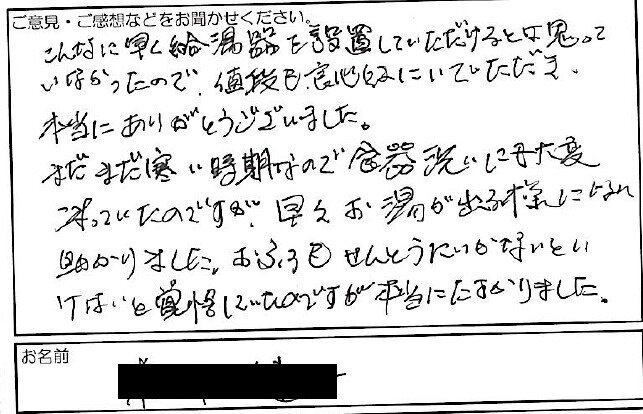 ご意見・ご感想などをお聞かせください。
こんなに早く給湯器を設置していただけるとは思って
いなかったので、値段も良心的にしていただき、
本当にありがとうございました。
まだまだ寒い時期なので食器洗いにも大変
困っていたのですが、早々お湯が出る様になれ
助かりました。おふろもせんとうにいかないとい
けないと覚悟していたのですが本当にたすかりました。
お名前